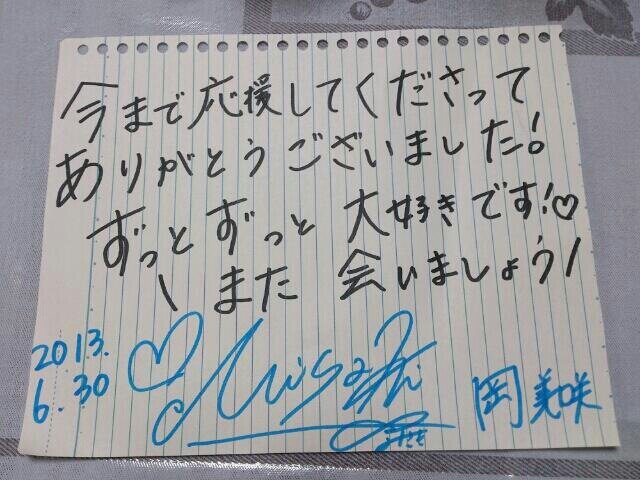 今まで応援してくださって
ありがとうございました!
ずっとずっと 大好きです!♡
\ また 会いましょう/
2013.
6.30
♡ Misaki
岡 美咲